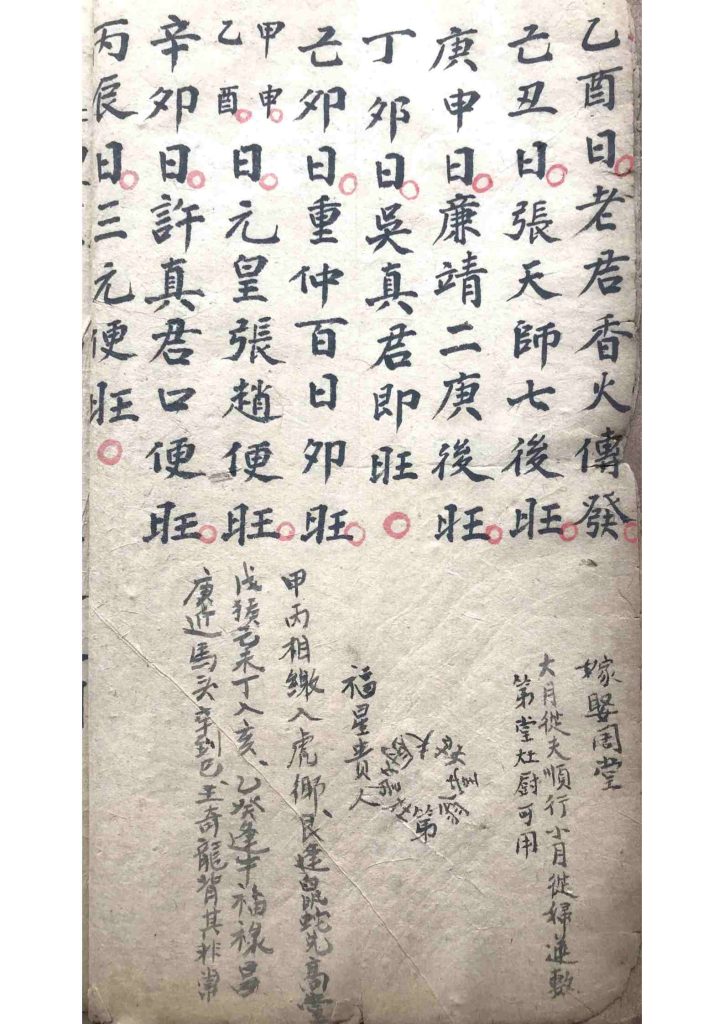 乙酉日老君香火傳發
亡丑日張天師七後旺
庚申日廉靖二庚後旺
丁夘日吳真君即旺
亡夘日重仲百日夘旺
甲申
乙酉
日元皇張趙便旺
辛夘日許真君口便旺
丙辰日三元便旺
嫁娶周堂
大月從夫順行小月從婦逆數
第堂灶厨可用
福星貴人
甲丙相繳入虎鄉艮逢鼠蛇先高堂
戊猴己未丁入亥乙癸逢牛福祿昌
庚近馬头辛到巳壬奇龍背其非常